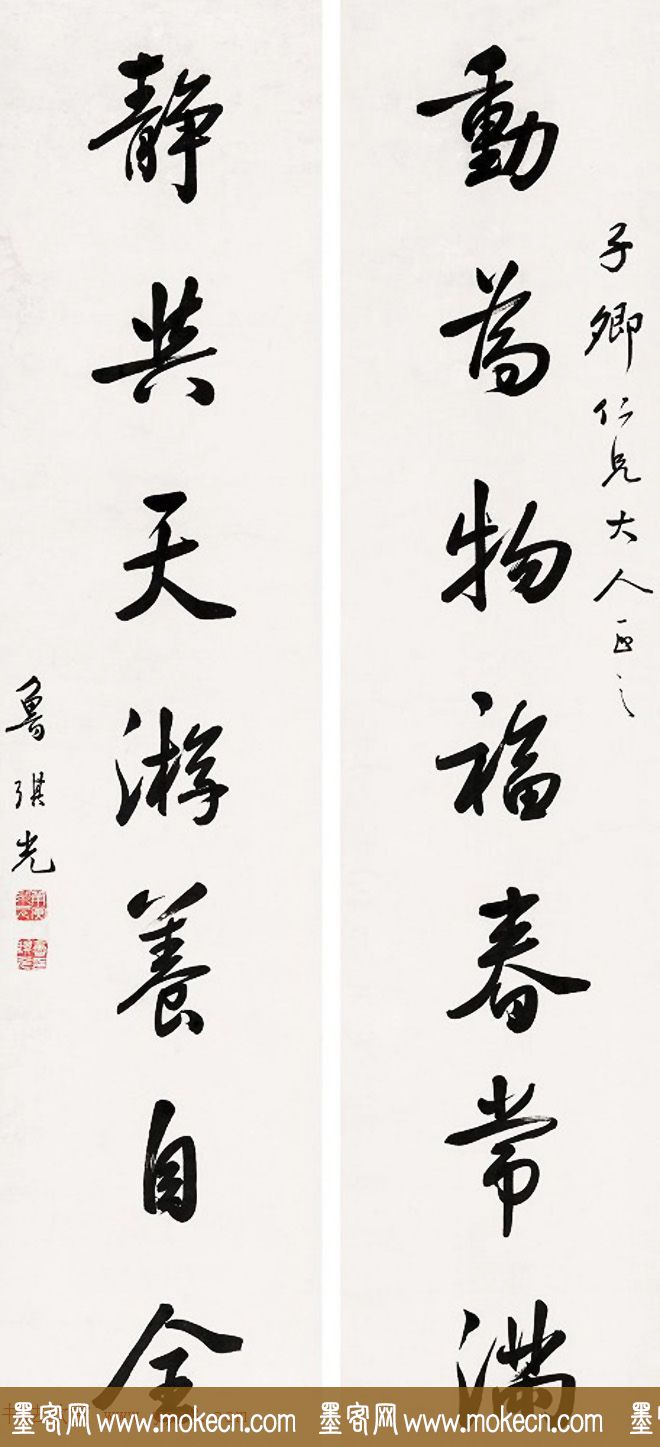 子卿仁兄大人正之
動為物福春常滿
静與天游養自全
魯琪光
墨客网 www.mokecn.com 墨客网 www.mokecn.com